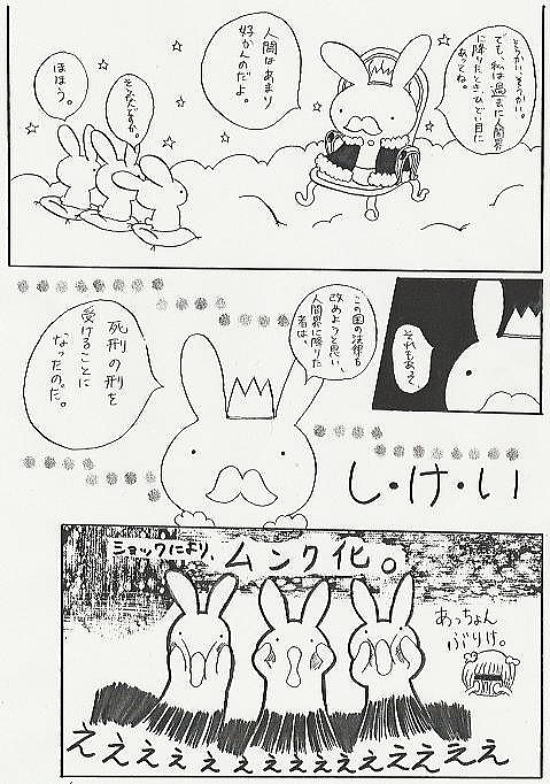 そうかい、そうかい。
でも、私は過去に人間界
に降りたとき、ひどい目に
あってね。
人間はあまり
好かんのだよ。
そみんですか。
ほほう。
それもあって
この国の法律も
改めようと思い、
人間界に降りた
者は、
死刑の刑を
受けることに
なったのだ。
し・け・い
ショックにより、ムンク化。
あっちょん
ぶりけ。
ええええええええええええええ